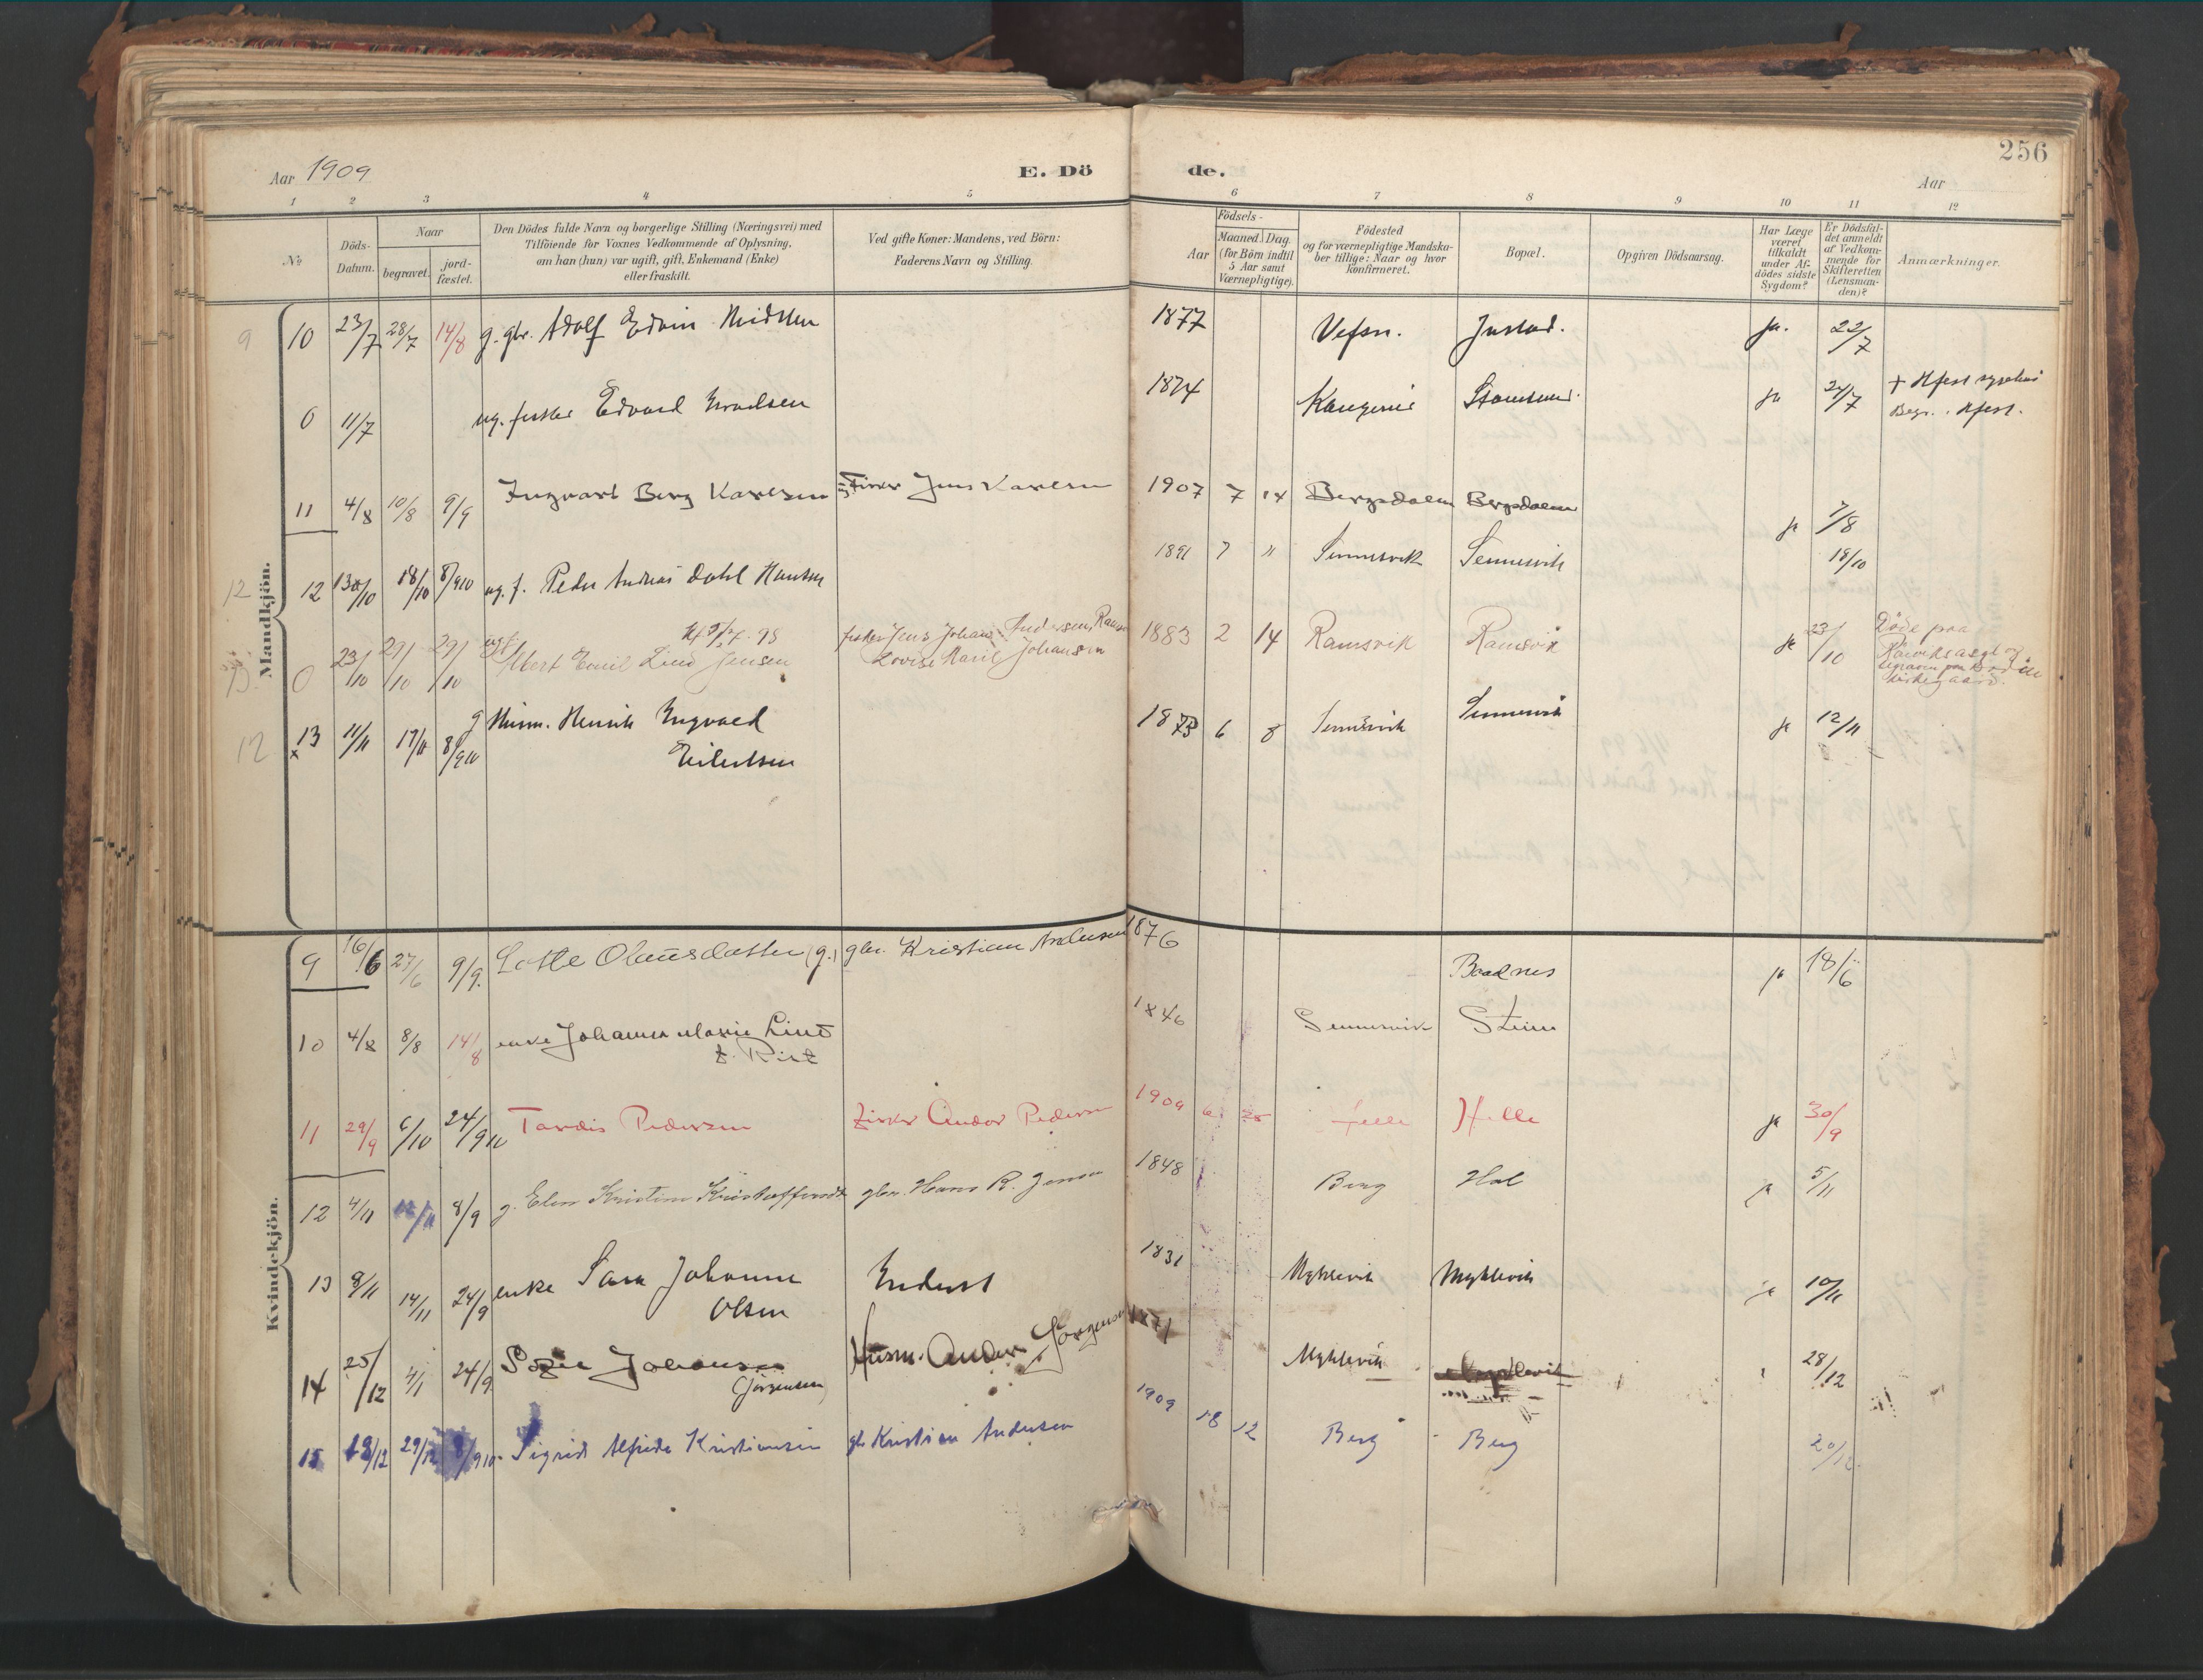 256
Aar 1909
E. Dö de.
Aar
1 2 3 4 5 6 7 8 9 10 11 12
№
Döds-Datum.
Naar
begravet.
jord-fæstet.
Den Dödes fulde Navn og borgerlige Stilling (Næringsvei) med
Tilföiende for Voxnes Vedkommende af Oplysning,
om han (hun) var ugift, gift, Enkemand (Enke)
eller fraskilt.
Ved gifte Koner: Mandens, ved Börn:
Faderens Navn og Stilling.
Födsels-
Aar
Maaned. Dag.
(for Börn indtil
5 Aar samt
Værnepligtige).
Födested
og for værnepligtige Mandska-
ber tillige: Naar og hvor
konfirmeret.
Bopæl.
Opgiven Dödsaarsag.
Har Læge
været
tilkaldt
under Af-
dödes sidste
Sygdom?
Er Dödsfal-
det anmeldt
af Vedkom-
mende for
Skifteretten
(Lensman-
den)?
Anmærkninger.
Mandkjön.
9 10 23/7 28/7 14/8 g. gbr. Adolf Edvin 1877 Vefsn. Justad. ja. 22/7
0 11/7 ug. fisker Edvard 1874 ja 24/7
11 4/8 10/8 9/9 Ingvart Berg Karlsen Fisker Jens Karlsen 1907 7 14 Bergsdalen Bergsdalen ja 7/8
12 12 18/10 8/9 10 ug. f. Peder Andreas Dahl Hansen 1891 7 " Sennesvik Sennesvik 18/10
0 23/10 29/10 29/10 ugf Albert Emil Lind Jensen fisker Jens Johan Andersen, 1883 2 14 Ramsvik Ramsvik ja 23/10 Döde paa
Lovise Marie Johansen
kirkegaard.
12 13 x 11/11 17/11 8/9 10 g Husm. Henrik Ingvald 1873 6 8 Sennesvik Sennesvik ja 12/11
Eilertsen
Kvindekjön.
9 16/6 27/6 9/9. Lotte Olausdatter (g.) gbr. Kristian Andersen 1876 Baadnes ja 18/6
10 4/8 8/8 14/8 enke Johanna Marie Lind 1846 Sennesvik Steine
f. Rist
11 29/9 6/10 24/9 10 Tordis Pedersen fisker Andor Pedersen 1909 6 25 Helle Helle ja 30/9
12 4/11 8/9 g. Elen Kristine Kristoffersdt gbr. Hans R. Jensen 1848 Berg Hol ja 5/11
13 8/11 14/11 24/9 enke Sara Johanna 1831 Myklevik Myklevik ja 10/11
Olsen
14 25/12 4/1 24/9 Johansen Husm. Anders Jörgensen 1871 Myklevik 28/12
(Jörgensen)
15 18/12 29/12 8/9 10. Sigrid Alfrida Kristiansen gbr Kristian Andersen 1909 18 12 Berg Berg 20/12.